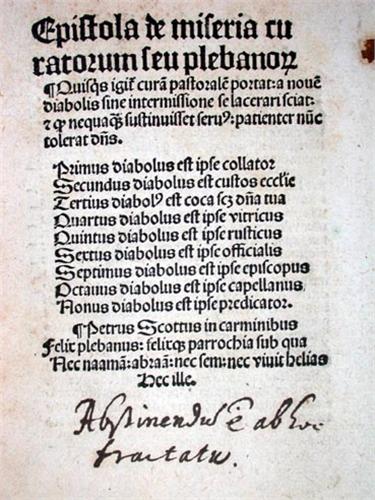 Epistola de miseria cu
ratorum seu plebanoꝝ
¶Quisq̃s igit᷑ curã pastoralẽ portat: a nouẽ
diabolis sine intermissione se lacerari sciat:
⁊ ꝙ nequaq̃ꝫ sustinuisset seruꝰ: patienter nũc
tolerat dñs.
Primus diabolus est ipse collator
Secundus diabolus est custos eccl'ie
Tertius diabolꝰ est coca scꝫ dña tua
Quartus diabolus est ipse vitricus
Quintus diabolus est ipse rusticus
Sextus diabolus est ipse officialis
Septimus diabolus est ipse episcopus
Octauus diabolus est ipse capellanus
Nonus diabolus est ipse predicator.
¶Petrus Scottus in carminibus
Felix plebanus: felixqꝫ parrochia sub qua
Nec naamã: abraã: nec sem: nec viuit helias
Hec ille.
Abstinendũ ẽ ab hoc
tractatu.